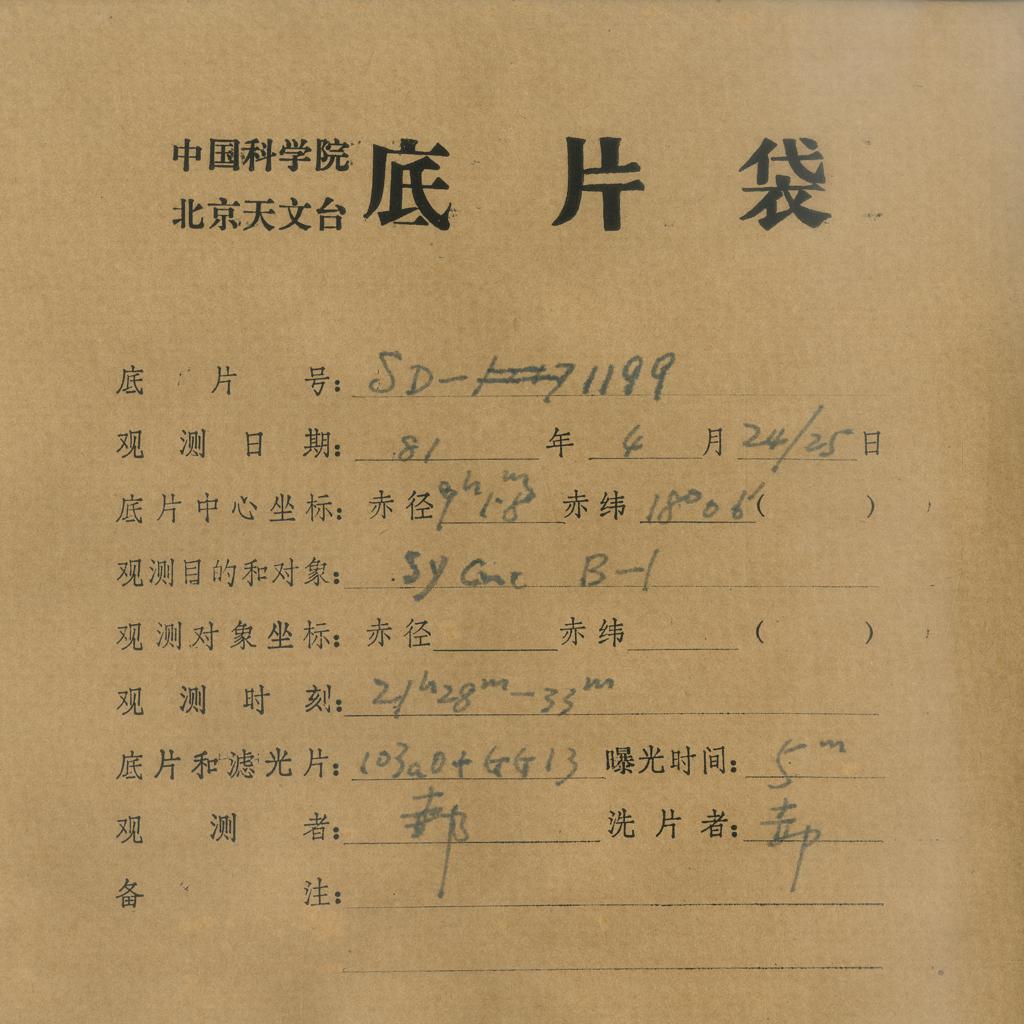 中国科学院
北京天文台
底片袋
底片号：SD-1199
观测日期：81年4月24/25日
底片中心坐标：赤径9h1.8m赤纬18°06′（ ）
观测目的和对象：SY Cnc B-1
观测对象坐标：赤径 赤纬 （ ）
观测时刻：21h28m-33m
底片和滤光片：103aO+GG13 曝光时间：5m
观测者：
洗片者：
备注：